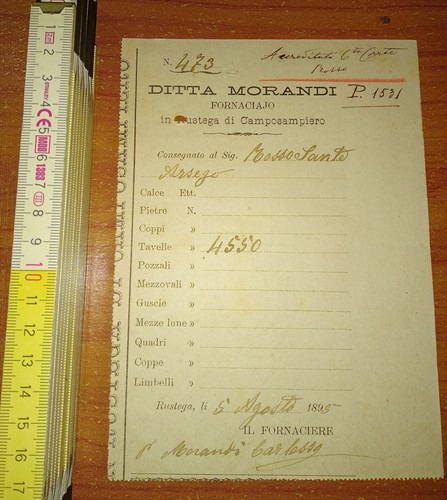 N. 473
Accreditato C.to Corr.te
Rosso
DITTA MORANDI P. 1531
FORNACIAJO
in Rustega di Camposampiero
Consegnato al Sig. Rosso Santo
Arsego
Calce Ett.
Pietre N.
Coppi »
Tavelle » 4550
Pozzali »
Mezzovali »
Guscie »
Mezze lune »
Quadri »
Coppe »
Limbelli »
Rustega, li 5 Agosto 1895
IL FORNACIERE
p. Morandi Carlesso
1
2
3
4
5
6
7
8
9
10
11
12
13
14
15
16
17